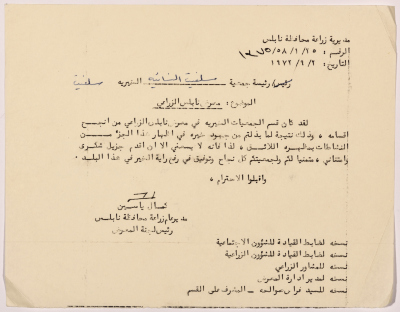 مديرية زراعة محافظة نابلس
الرقم : ٥٨/١/٢٥/
التاريخ : ١٩٧٢/٩/٢
رئيس/ رئيسة جمعية سلفيت النسائية الخيرية سلفيت
الموضوع : معرض نابلس الزراعي
لقد كان قسم الجمعيات الخيرية في معرض نابلس الزراعي من انجح
اقسامه ، وذلك نتيجة لما بذلتم من جهود خيرة في اظهار هذا الجزء من
النشاطات بمظهره اللائق ، لذا فانه لا يسعني الا ان اقدم جزيل شكري
وامتناني ، متمنيا لكم ولجمعيتكم كل نجاح وتوفيق في رفع راية الخير في هذا البلد .
واقبلوا الاحترام ،
كمال ياسين
مدير عام زراعة محافظة نابلس
رئيس لجنة المعرض
نسخه لضابط القيادة للشؤون الاجتماعية
نسخه لضابط القيادة للشؤون الزراعية
نسخه للمشاور الزراعي
نسخه لمدير ادارة المعرض
نسخه للسيد المشرف على القسم